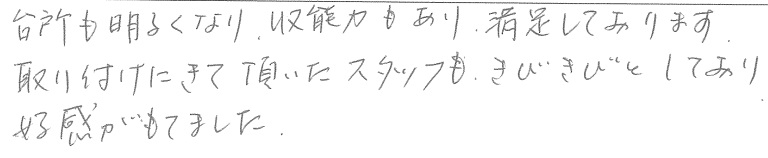 台所も明るくなり、収能力もあり、満足しております。
取り付けにきて頂いたスタッフも、きびきびとしており
好感がもてました。